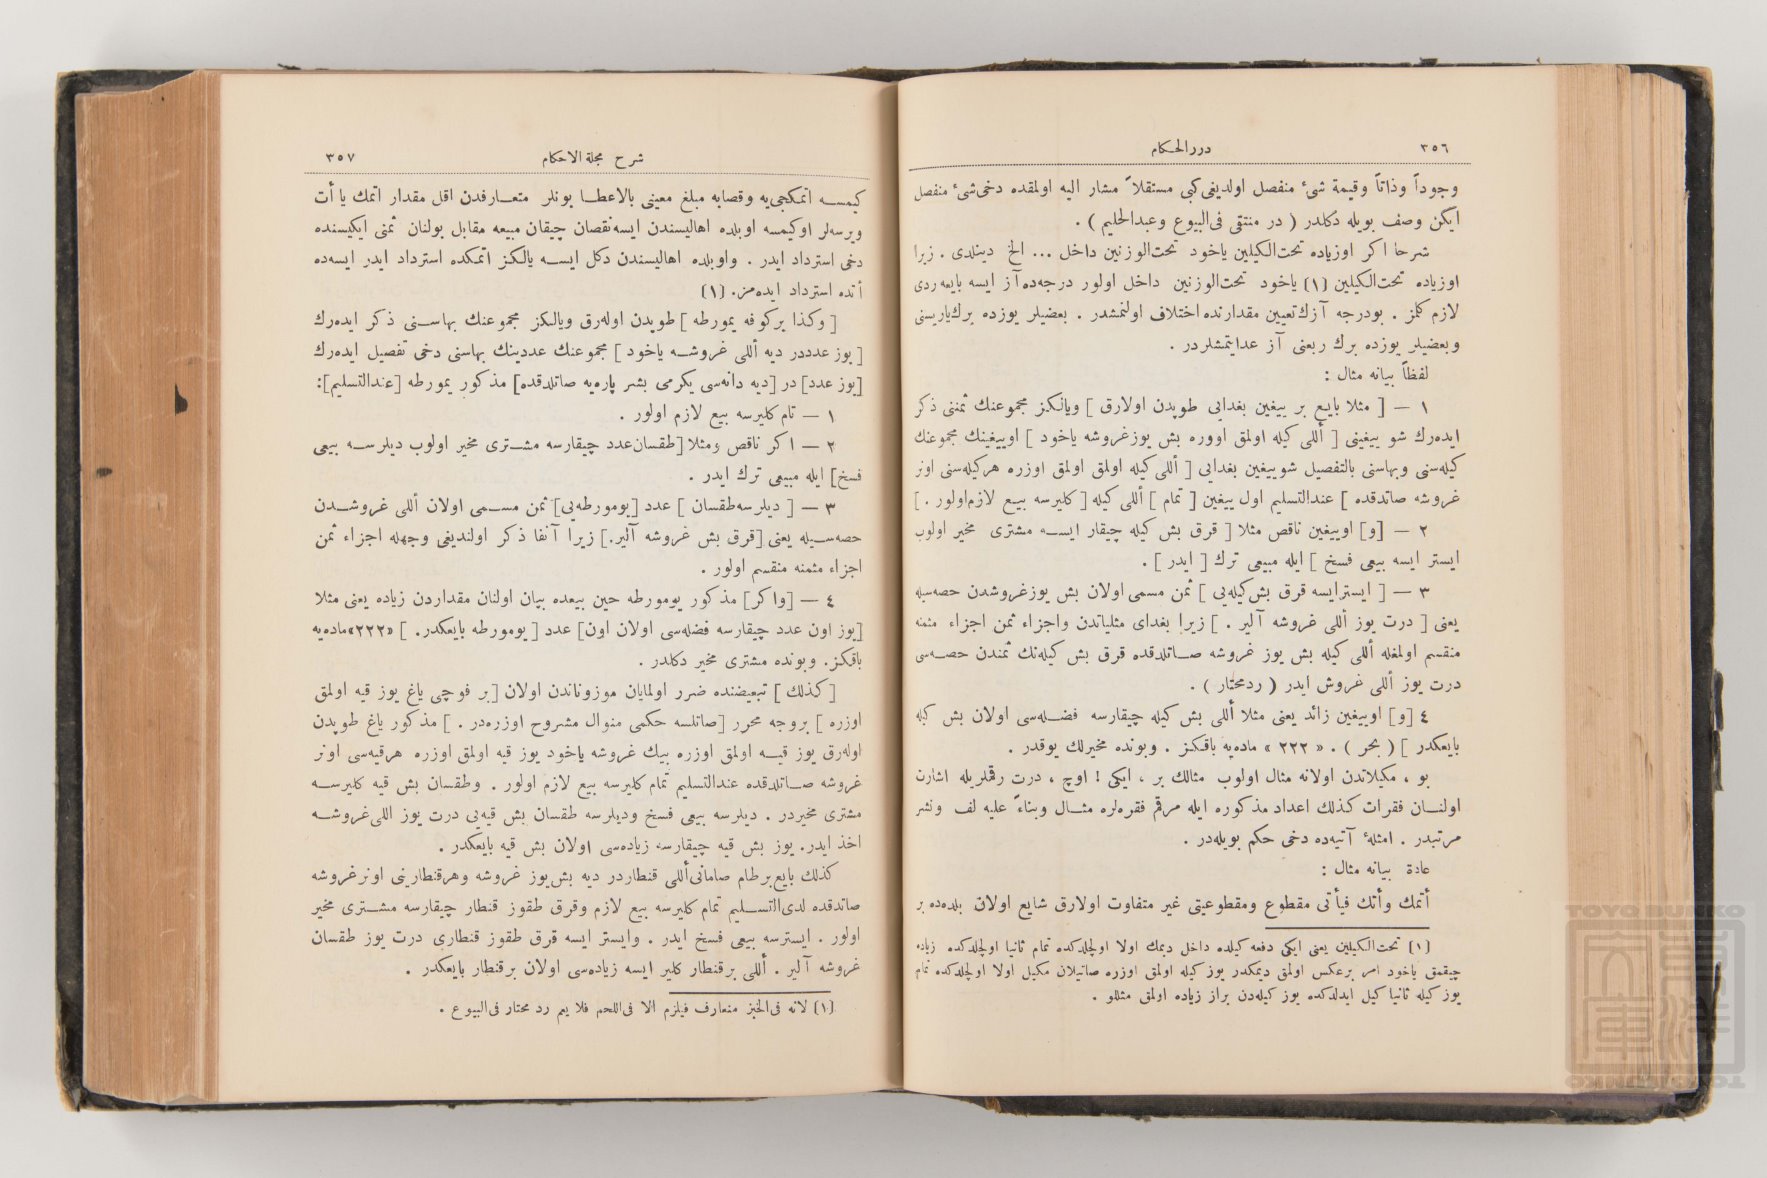 ٣٥٦
دررالحكام
وجوداً وذاتاً وقيمة شئ منفصل اولديغى كبى مستقلاً مشار اليه اولمقده دخى شئ منفصل
ايكن وصف بويله دكلدر ( در منتقى فى البيوع وعبدالحليم ) .
شرحا اكر اوزياده تحت الكيلين ياخود تحت الوزنين داخل ... الخ دينلدى . زيرا
اوزياده تحت الكيلين (١) ياخود تحت الوزنين داخل اولور درجه‌ده آز ايسه بايعه ردى
لازم كلمز . بودرجه آزك تعيين مقدارنده اختلاف اولنمشدر . بعضيلر يوزده برك ياريسنى
وبعضيلر يوزده برك ربعنى آز عدايتمشلردر .
لفظاً بيانه مثال :
١ — [ مثلا بايع بر ييغين بغدايى طوپدن اولارق ] ويالكز مجموعنك ثمننى ذكر
ايده‌رك شو ييغينى [ أللى كيله اولمق اووره بش يوزغروشه ياخود ] اوييغينك مجموعنك
كيله‌سنى وبهاسنى بالتفصيل شوييغين بغدايى [ أللى كيله اولمق اولمق اوزره هركيله‌سنى اونر
غروشه صاتدقده ] عندالتسليم اول ييغين [ تمام ] أللى كيله [ كليرسه بيع لازم اولور . ]
٢ — [و] اوييغين ناقص مثلا [ قرق بش كيله چيقار ايسه مشترى مخير اولوب
ايستر ايسه بيعى فسخ ] ايله مبيعى ترك [ ايدر ] .
٣ — [ ايسترايسه قرق بش كيله‌يى ] ثمن مسمى اولان بش يوزغروشدن حصه‌سيله
يعنى [ درت يوز أللى غروشه آلير . ] زيرا بغداى مثلياتدن واجزاء ثمن اجزاء مثمنه
منقسم اولمغله أللى كيله بش يوز غروشه صاتلدقده قرق بش كيله‌نك ثمندن حصه‌سى
درت يوز أللى غروش ايدر ( ردمحتار ) .
٤ [و] اوييغين زائد يعنى مثلا أللى بش كيله چيقارسه فضله‌سى اولان بش كيله
بايعكدر ] ( بحر ) . « ٢٢٢ » ماده‌يه باقكز . وبونده مخيرلك يوقدر .
بو ، مكيلاتدن اولانه مثال اولوب مثالك بر ، ايكى ! اوچ ، درت رقملريله اشارت
اولنان فقرات كذلك اعداد مذكوره ايله مرقم فقره‌لره مثال وبناءً عليه لف ونشر
مرتبدر . امثلهٔ آتيه‌ده دخى حكم بويله‌در .
عادة بيانه مثال :
أتمك وأتك فيأتى مقطوع ومقطوعيتى غير متفاوت اولارق شايع اولان بلده‌ده بر
(١) تحت الكيلين يعنى ايكى دفعه كيلده داخل ديمك اولا اولچلدكده تمام ثانيا اولچلدكده زياده
چيقمق ياخود امر برعكس اولمق ديمكدر يوز كيله اولمق اوزره صاتيلان مكيل اولا اولچلدكده تمام
يوز كيله ثانيا كيل ايدلدكده يوز كيله‌دن براز زياده اولمق مثللو .
شرح مجلة الاحكام
٣٥٧
كيمسه اتمكجى‌يه وقصابه مبلغ معينى بالاعطا بونلر متعارفدن اقل مقدار اتمك يا أت
ويرسه‌لر اوكيمسه اوبلده اهاليسندن ايسه نقصان چيقان مبيعه مقابل بولنان ثمنى ايكيسنده
دخى استرداد ايدر . واوبلده اهاليسندن دكل ايسه يالكز اتمكده استرداد ايدر ايسه‌ده
أتده استرداد ايده‌مز. (١)
[ وكذا بركوفه يمورطه ] طوپدن اوله‌رق ويالكز مجموعنك بهاسنى ذكر ايده‌رك
[ يوز عدددر ديه أللى غروشه ياخود ] مجموعنك عددينك بهاسنى دخى تفصيل ايده‌رك
[يوز عدد] در [ديه دانه‌سى يكرمى بشر پاره‌يه صاتلدقده] مذكور يمورطه [عندالتسليم]:
١ — تام كليرسه بيع لازم اولور .
٢ — اكر ناقص ومثلا [طقسان عدد چيقارسه مشترى مخير اولوب ديلرسه بيعى
فسخ] ايله مبيعى ترك ايدر .
٣ — [ ديلرسه طقسان ] عدد [يومورطه‌يى] ثمن مسمى اولان أللى غروشدن
حصه‌سيله يعنى [قرق بش غروشه آلير.] زيرا آنفا ذكر اولنديغى وجهله اجزاء ثمن
اجزاء مثمنه منقسم اولور .
٤ — [واكر] مذكور يومورطه حين بيعده بيان اولنان مقداردن زياده يعنى مثلا
[يوز اون عدد چيقارسه فضله‌سى اولان اون] عدد [ يومورطه بايعكدر. ] «٢٢٢» ماده‌يه
باقكز. وبونده مشترى مخير دكلدر .
[ كذلك ] تبعيضنده ضرر اولمايان موزوناندن اولان [بر فوچى ياغ يوز قيه اولمق
اوزره ] بروجه محرر [صاتلسه حكمى منوال مشروح اوزره‌در . ] مذكور ياغ طوپدن
اوله‌رق يوز قيه اولمق اوزره بيك غروشه ياخود يوز قيه اولمق اوزره هرقيه‌سى اونر
غروشه صاتلدقده عندالتسليم تمام كليرسه بيع لازم اولور . وطقسان بش قيه كليرسه
مشترى مخيردر . ديلرسه بيعى فسخ وديلرسه طقسان بش قيه‌يى درت يوز اللى غروشه
اخذ ايدر. يوز بش قيه چيقارسه زياده‌سى اولان بش قيه بايعكدر .
كذلك بايع برطام صامانى أللى قنطاردر ديه بش يوز غروشه وهرقنطارينى اونرغروشه
صاتدقده لدى التسليم تمام كليرسه بيع لازم وقرق طقوز قنطار چيقارسه مشترى مخير
اولور . ايسترسه بيعى فسخ ايدر . وايستر ايسه قرق طقوز قنطارى درت يوز طقسان
غروشه آلير . أللى برقنطار كلير ايسه زياده‌سى اولان برقنطار بايعكدر .
(١) لانه فى الخبز متعارف فيلزم الا فى اللحم فلا يعم رد محتار فى البيوع .
TOYO BUNKO